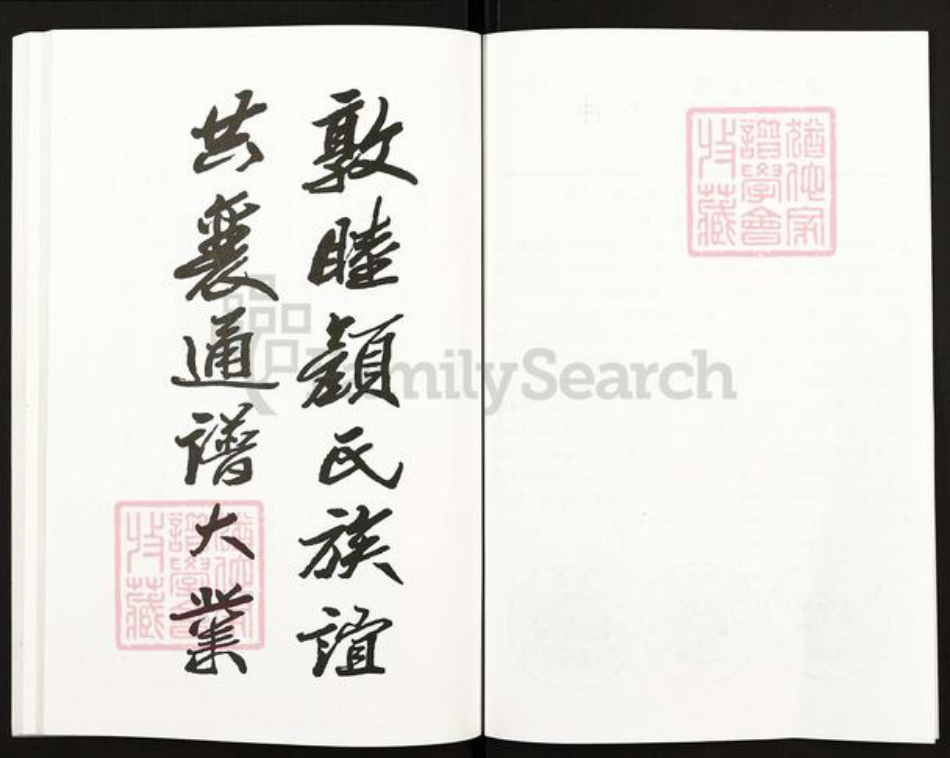 敦睦顏氏族誼
共襄通譜大業
猶他家
譜學會
收藏
猶他家
譜學會
收藏
FamilySearch